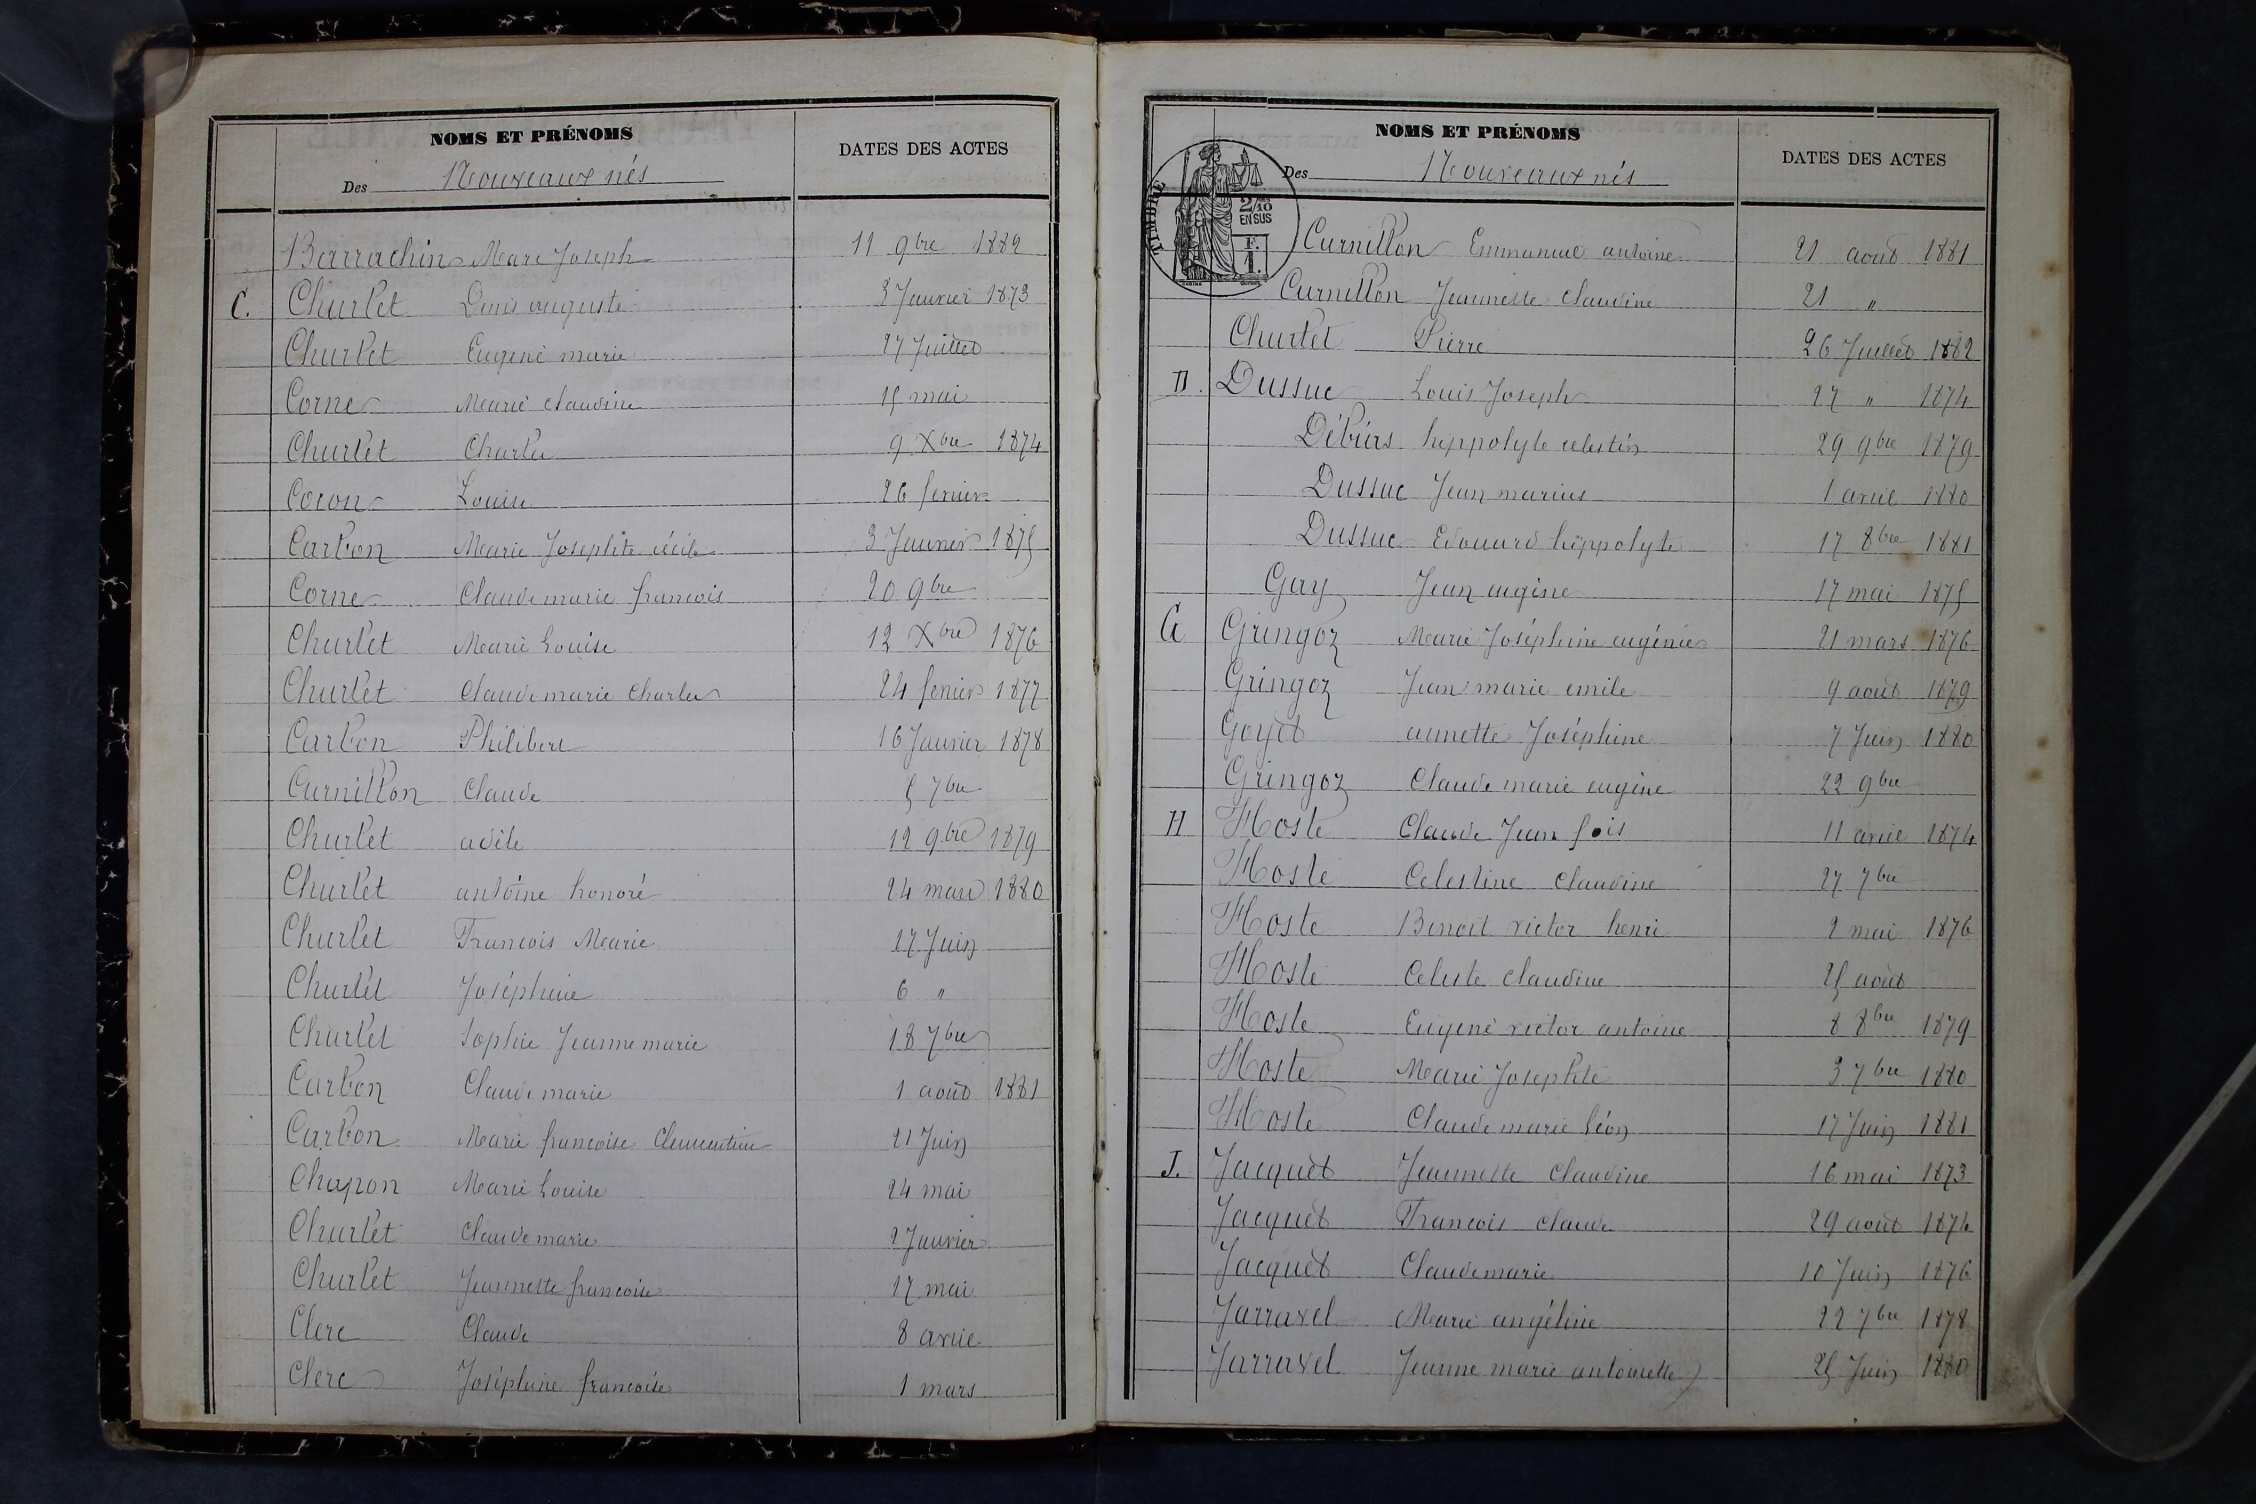 NOMS ET PRÉNOMS
DATES DES ACTES
Des Nouveaux nés
Barrachin Marc Joseph 11 9bre 1882
C. Churlet Louis auguste 3 Janvier 1873
Churlet Eugenè marie 27 Juillet
Corne Marie claudine 15 mai
Churlet Charles 9 Xbre 1874
Cocon Louise 26 fevrier
Carbon Marie Josephte cécile 3 Janvier 1875
Corne Claude marie francois 20 9bre
Churlet Marie Louise 12 Xbre 1876
Churlet Claude marie Charles 24 fevrier 1877
Carbon Philibert 16 Janvier 1878
Curnillon Claude 5 7bre
Churlet adèle 12 9bre 1879
Churlet antoine honoré 24 mars 1880
Churlet Francois Marie 17 Juin
Churlet Joséphine 6 "
Churlet Sophie Jeanne marie 18 7bre
Carbon Claude marie 1 août 1881
Carbon Marie francoise Clementine 21 Juin
Chapon Marie Louise 24 mai
Churlet Claude marie 2 Janvier
Churlet Jeannette francoise 17 mai
Clerc Claude 8 avril
Clerc Joséphine francoise 1 mars
NOMS ET PRÉNOMS
DATES DES ACTES
Des Nouveaux nés
TIMBRE
2/10
EN SUS
F.
1.
Curnillon Emmanuel antoine 21 août 1881
Curnillon Jeannette Claudine 21 "
Churlet Pierre 26 Juillet 1882
D. Dussuc Louis Joseph 27 " 1874
Débürs hippolyte celestin 29 9bre 1879
Dussuc Jean marius 1 avril 1880
Dussuc Edouard hippolyte 17 8bre 1881
Gay Jean eugène 17 mai 1875
G Gringoz Marie Joséphine eugénie 21 mars 1876
Gringoz Jean marie emile 9 août 1879
Goyet annette Joséphine 7 Juin 1880
Gringoz Claude marie eugène 22 9bre
H Hoste Claude Jean fois 11 avril 1874
Hoste Celestine Claudine 27 7bre
Hoste Benoit victor henri 2 mai 1876
Hoste Celeste claudine 25 août
Hoste Eugenè victor antoine 8 8bre 1879
Hoste Marie Josephte 3 7bre 1880
Hoste Claude marie léon 17 Juin 1881
J. Jacquet Jeannette Claudine 16 mai 1873
Jacquet Francois claude 29 août 1874
Jacquet Claude marie 10 Juin 1876
Jarravel Marie angéline 22 7bre 1878
Jarravel Jeanne marie antoinette 25 Juin 1880